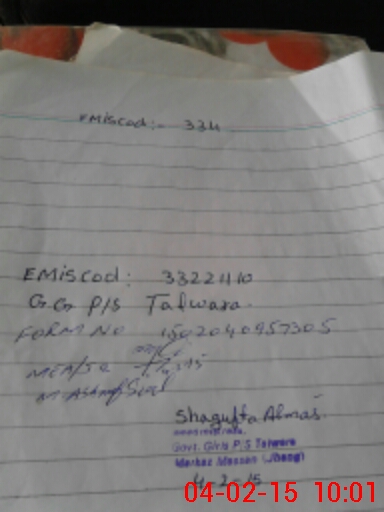 EMiscod:- 334
EMiscod: 33221110
G.G P/S Talwara.
FORM NO 1502040957305
MEA/
Shagufta Almas.
Govt. Girls P/S Talwara
Markaz Massan (Jhang)
4-2-15
04-02-15 10:01